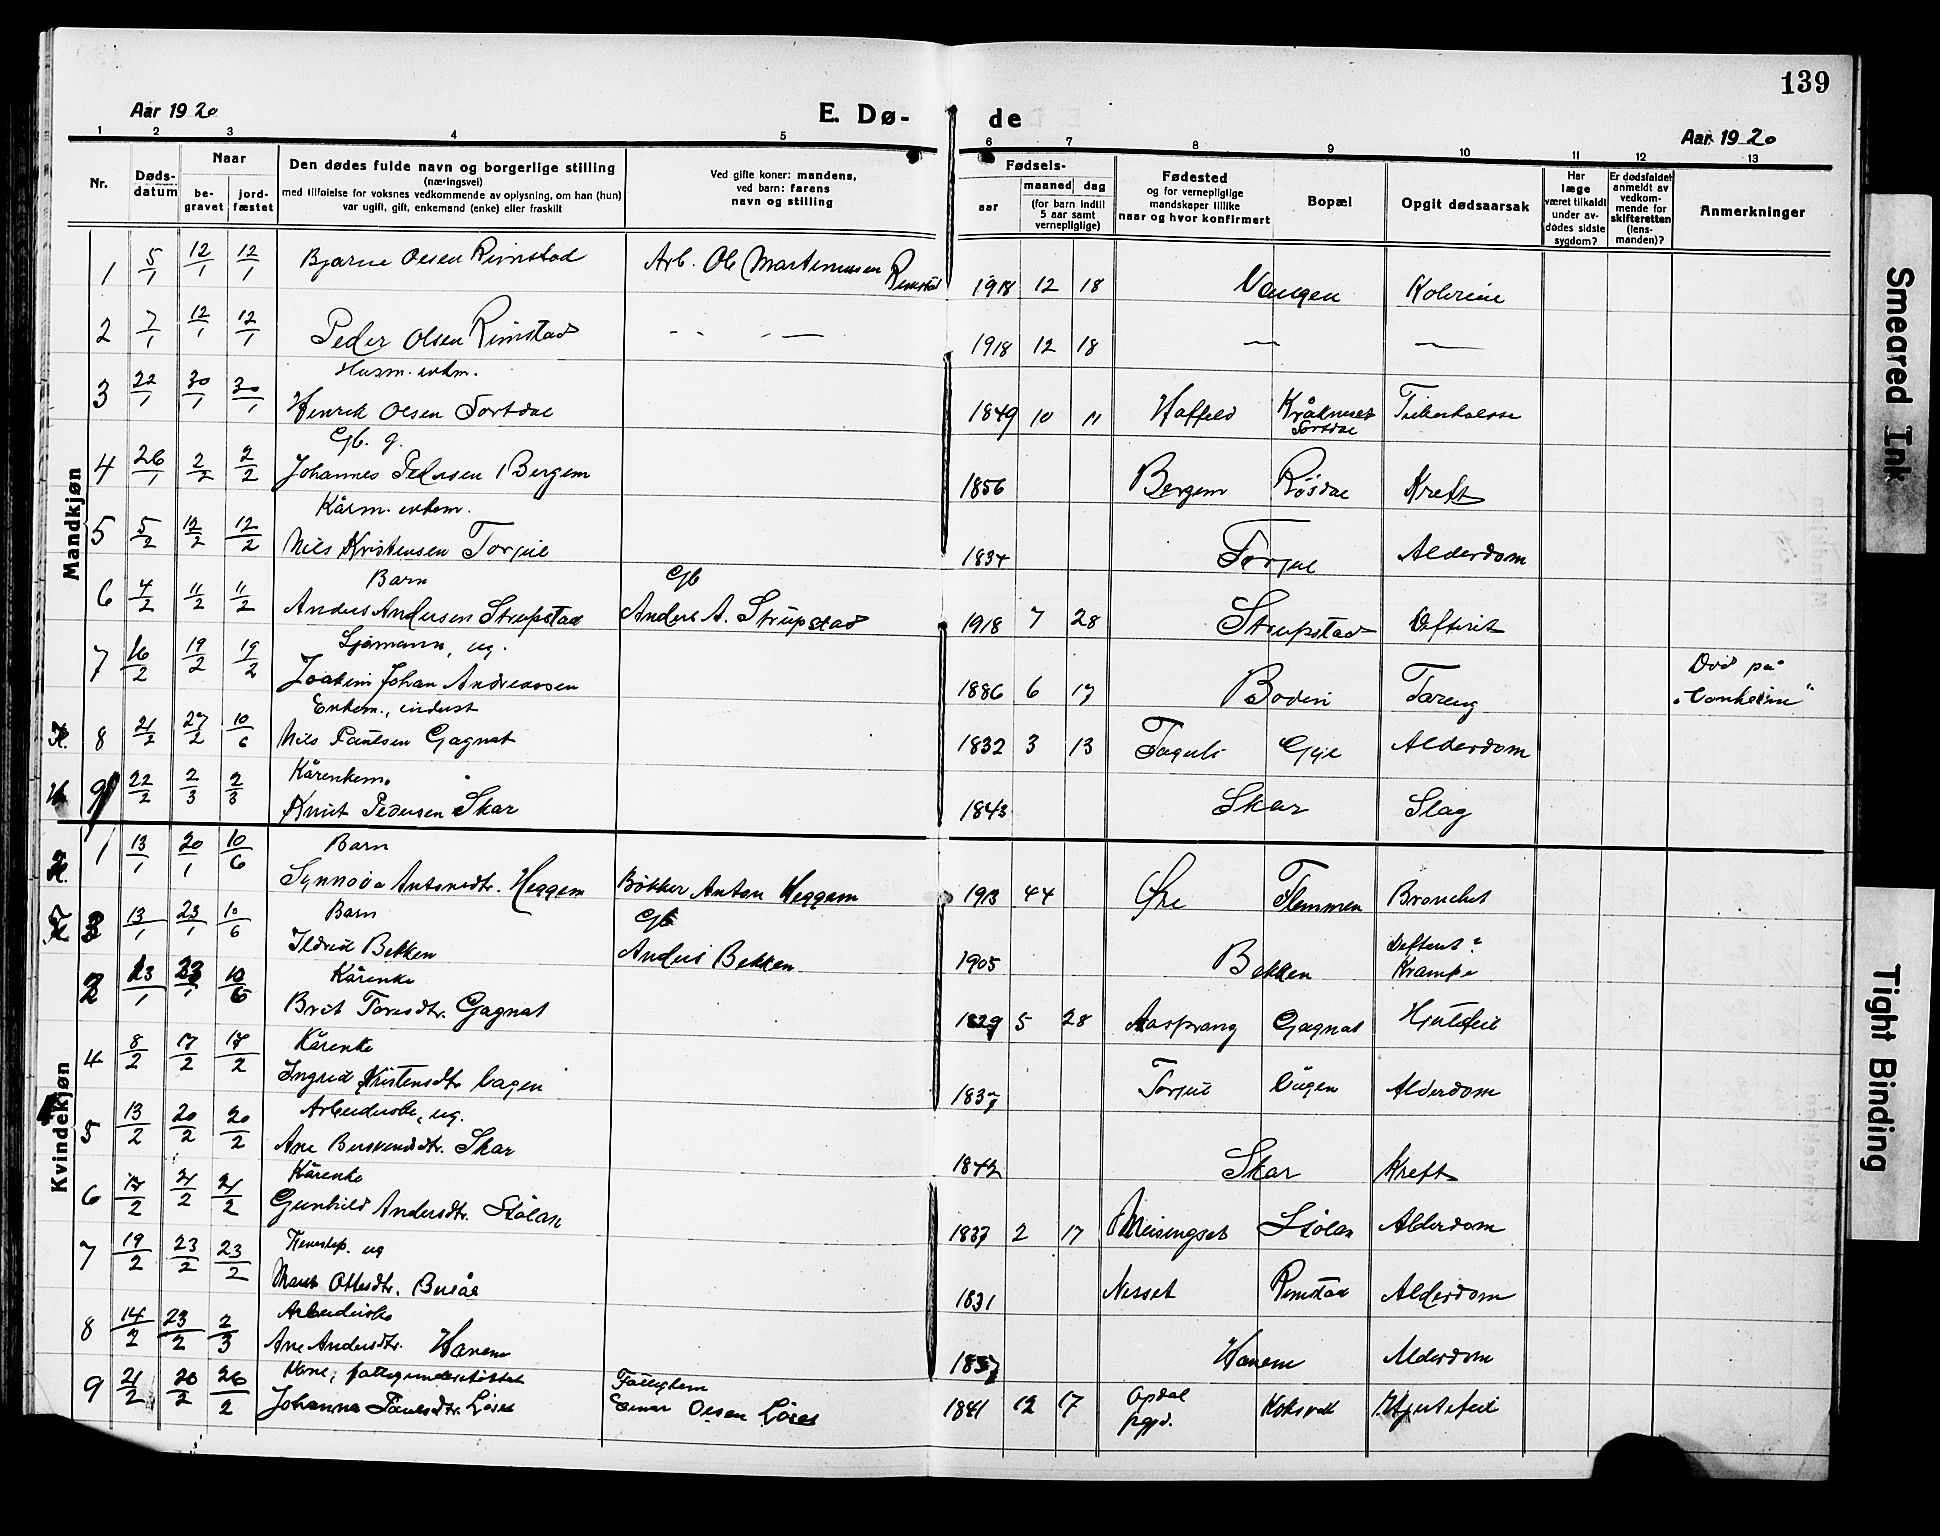 139
Aar 1920
E. Dø-
de
Aar 1920
1 2 3 4 5 6 7 8 9 10 11 12 13
Nr.
Døds-
datum
Naar
be-
gravet
jord-
fæstet
Den dødes fulde navn og borgerlige stilling
(næringsvei)
med tilføielse for voksnes vedkommende av oplysning, om han (hun)
var ugift, gift, enkemand (enke) eller fraskilt
Ved gifte koner: mandens,
ved barn: farens
navn og stilling
Fødsels-
aar
maaned
dag
(for barn indtil
5 aar samt
vernepligtige)
Fødested
og for vernepligtige
mandskaper tillike
naar og hvor konfirmert
Bopæl
Opgit dødsaarsak
Har
læge
været tilkaldt
under av-
dødes sidste
sygdom?
Er dødsfaldet
anmeldt av
vedkom-
mende for
skifteretten
(lens-
manden)?
Anmerkninger
Mandkjøn
1 5/1 12/1 12/1 Bjarne Olsen Rimstad Arb. Ole Martinussen Rimstad 1918 12 18 Vangen
2 7/1 12/1 12/1 Peder Olsen Rimstad 1918 12 18
Husm. enkem.
3 22/1 30/1 30/1 Henrik Olsen Tortdal 1849 10 11 Haffeld Tortdal
Gb. g.
4 26/1 2/2 2/2 Johannes Pedersen Bergem 1856 Bergem Røsdal Kreft
Kårm. enkem.
5 5/2 12/2 12/2 Nils Kristensen Torjul 1834 Torjul Alderdom
Barn Gb
6 4/2 11/2 11/2 Anders Andersen Strupstad Anders A. Strupstad 1918 7 28 Strupstad Difterit
Sjømann, ug.
7 16/2 19/2 19/2 Joakim Johan Andreassen 1886 6 17 Bodin Tæring Død på
"Vonheim"
Enkem., inderst
8 21/2 27/2 10/6 Nils Paulsen Gagnat 1832 3 13 Fagerli Gyl Alderdom
Kårenkem.
9 22/2 2/3 2/3 Knut Pedersen Skar 1843 Skar Slag
Kvindekjøn
Barn
1 13/1 20/1 10/6 Synnøva Antonsdtr. Heggem Bøkker Anton Heggem 1913 44 Øre Flemmen Bronchit
Barn Gb
3 13/1 23/1 10/6 Ildrid Bekken Anders Bekken 1905 Bekken Difterit?
Krampe
Kårenke
2 23/1 10/6 Brit Toresdtr. Gagnat 1829 5 28 Aasprang Gagnat Hjertefeil
Kårenke
4 8/2 17/2 17/2 Ingrid Kristensdtr. 1837 Torjul Alderdom
Arbeiderske, ug.
5 13/2 20/2 20/2 Ane Skar 1842 Skar Kreft
Kårenke
6 17/2 21/2 21/2 Gunhild Andersdtr. Stølan 1837 2 17 Meisingset Stølan Alderdom
ug
7 19/2 23/2 23/2 Marit Ottesdtr. 1831 Nesset Rimstad Alderdom
Arbeiderske
8 14/2 23/2 2/3 Ane Andersdtr. Hanem 1837 Hanem Alderdom
Kone, fattigunderstøttet Fattiglem
9 21/2 26/2 26/2 Johanna Paulsdtr. Løset Einar Olsen Løset 1841 12 17 Opdal
pgjd. Koksvik Hjertefeil
Smeared Ink
Tight Binding